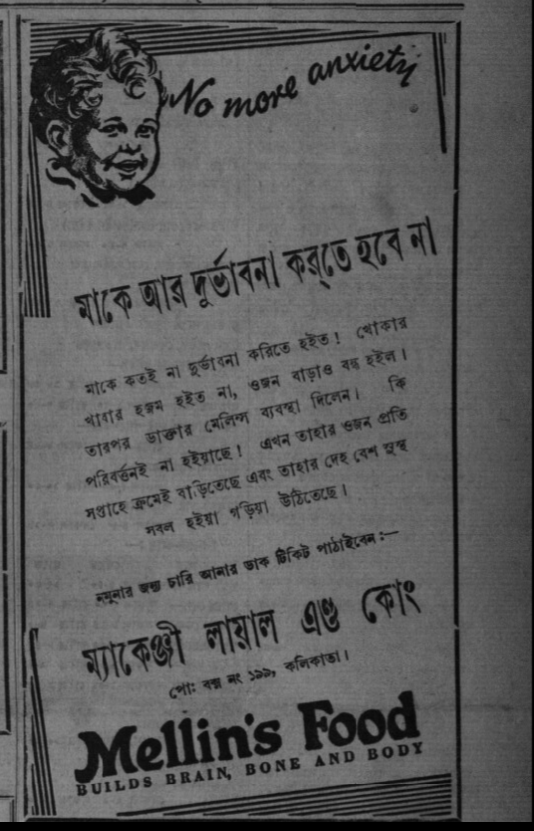 No more anxiety
মাকে আর দুর্ভাবনা কর্‌তে হবে না
মাকে কতই না দুর্ভাবনা করিতে হইত! খোকার
খাবার হজম হইত না, ওজন বাড়াও বন্ধ হইল।
তারপর ডাক্তার মেলিন্স ব্যবস্থা দিলেন। কি
পরিবর্ত্তনই না হইয়াছে! এখন তাহার ওজন প্রতি
সপ্তাহে ক্রমেই বাড়িতেছে এবং তাহার দেহ বেশ সুস্থ
সবল হইয়া গড়িয়া উঠিতেছে।
নমুনার জন্য চারি আনার ডাক টিকিট পাঠাইবেন:—
ম্যাকেঞ্জী লায়াল এণ্ড কোং
পোঃ বক্স নং ১৯৯, কলিকাতা।
Mellin's Food
BUILDS BRAIN, BONE AND BODY